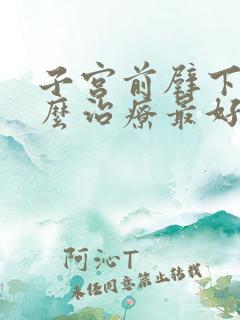 子宫前壁下
麼治療最好
阿沁T
未经同意禁止转载